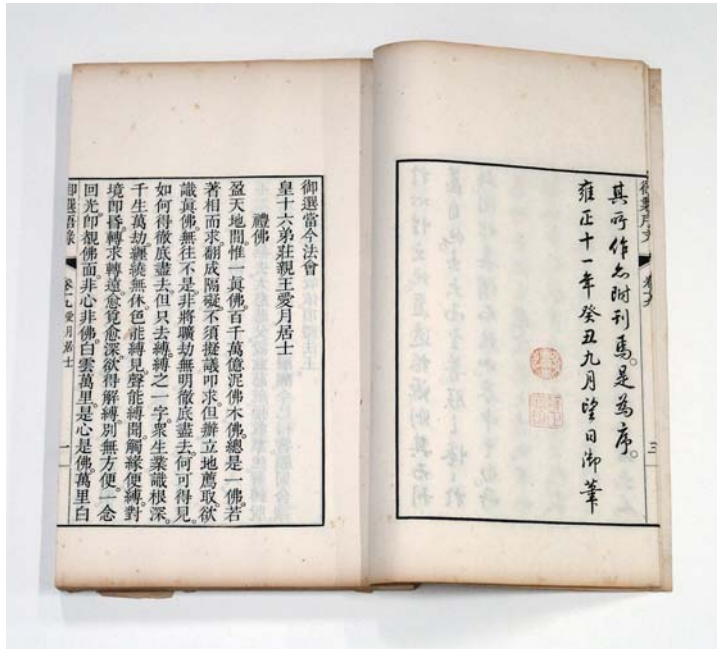 其所作亦附刊焉。是為序。
雍正十一年癸丑九月望日御筆
卷十九
三
御選當今法會
皇十六弟莊親王愛月居士
禮佛
盈天地間。惟一眞佛。百千萬億泥佛木佛。總是一佛。若
著相而求。翻成隔礙。不須擬議叩求。但辦立地薦取。欲
識眞佛。無往不是。非將曠劫無明徹底盡去。何可得見。
如何得徹底盡去。但只去縛。縛之一字。衆生業識根深。
千生萬劫。纏繞無休。色能縛見。聲能縛聞。觸緣便縛。對
境卽昏。轉求轉遠。愈覓愈深。欲得解縛。別無方便。一念
回光。卽覩佛面。非心非佛。白雲萬里。是心是佛。萬里白
御選語錄
卷十九愛月居士
一